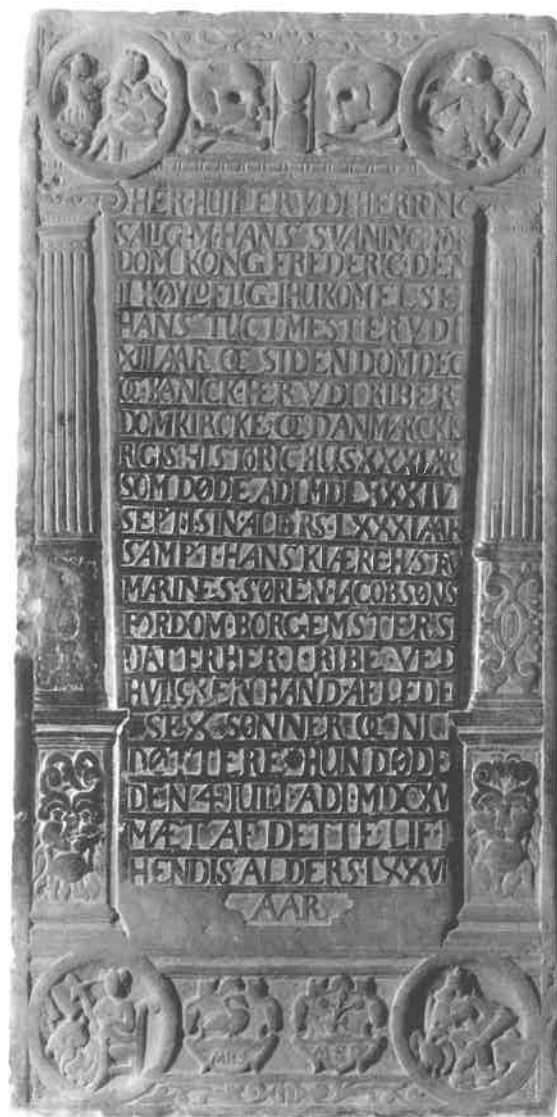 HER HVILER VDI HERRENS
SALIG M HANS SVANING FOR
DOM KONG FREDERIC DEN
II HØYLOFLIG IHUKOMELSE
HANS TUCTMESTER VDI
XIII AAR OC SIDEN DOM DEC
OC KANICK HER VDI RIBER
DOMKIRCKE OC DANMARCKIS
RIGIS HISTORICHUS XXXI AAR
SOM DØDE AD MDLXXXIV
SEPT SIN ALDERS LXXXI AAR
SAMPT HANS KIÆRE HVSTRV
MARINE S SØREN IACOBSØNS
FORDOM BORGEMSTERS
DATTER HER I RIBE VED
HVILCKEN HAND AFLEDE
SEX SØNNER OC NI
DØTTERE HUN DØDE
DEN 4 IULI AD MDCXV
MÆT AF DETTE LIF I
HENDIS ALDERS LXXVI
AAR
MHS MSD